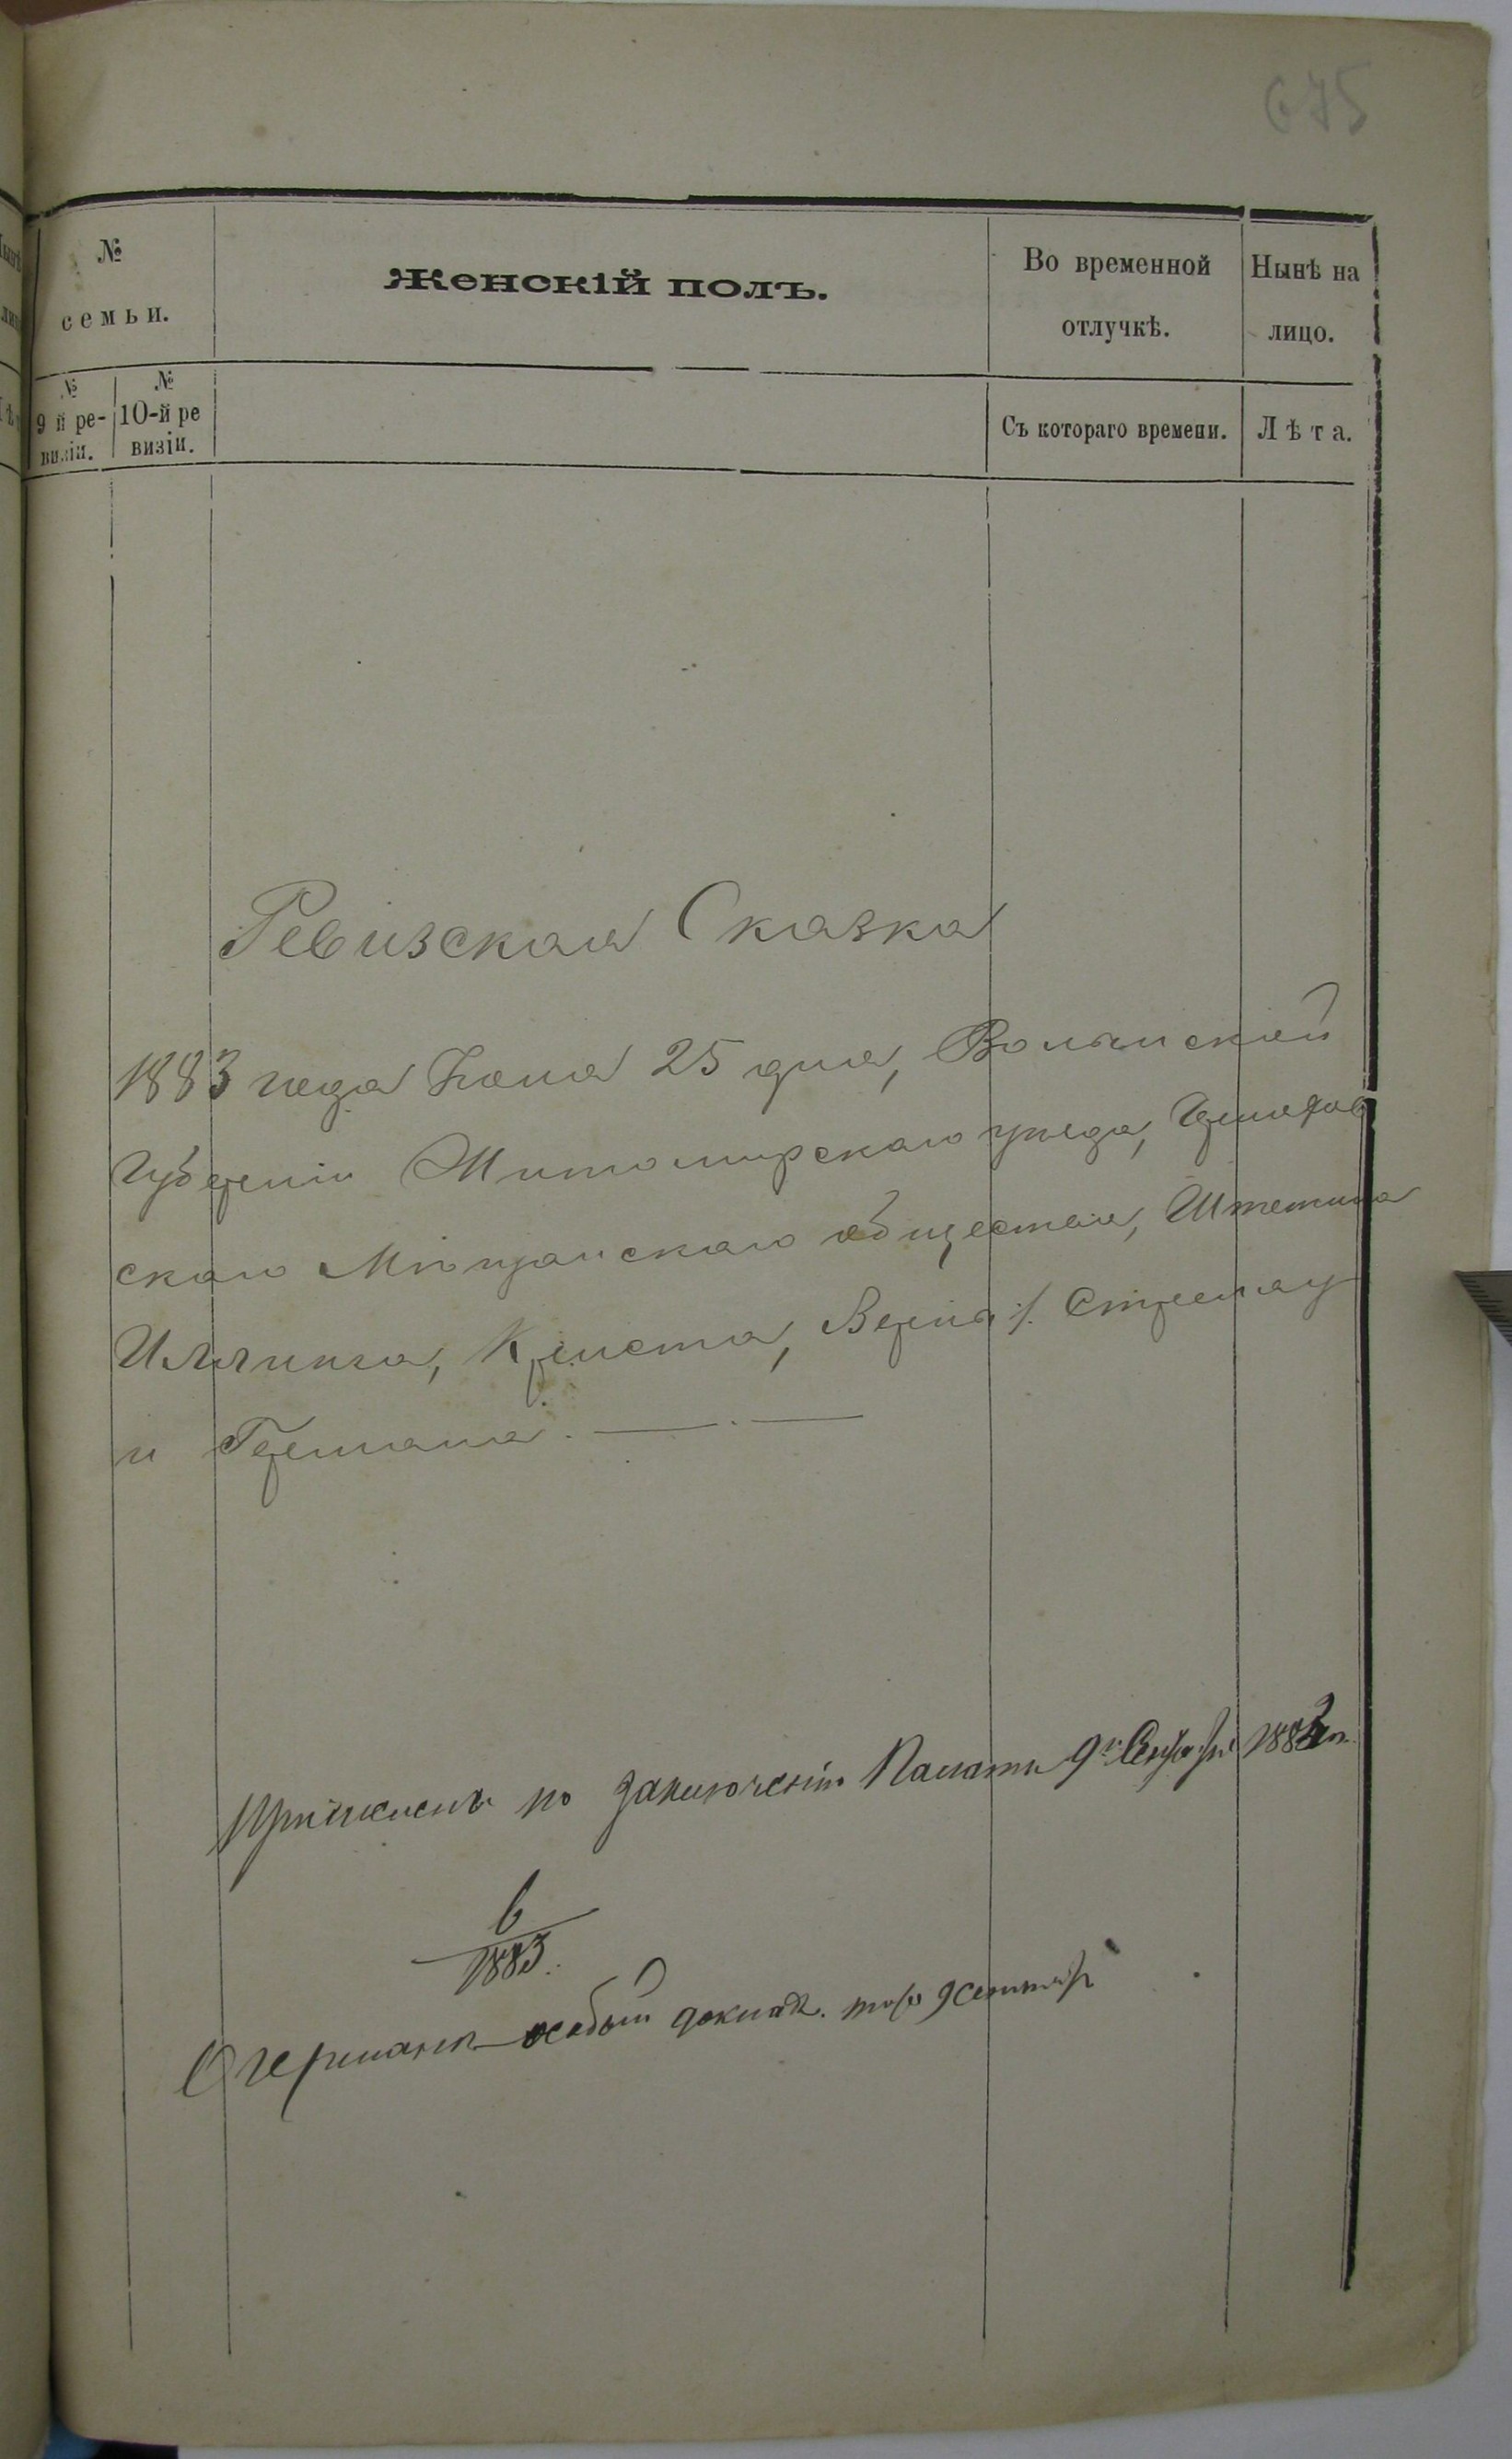 675
№
семьи.
Женскій полъ.
Во временной
отлучкѣ.
Нынѣ на
лицо.
№
9 й ре-
визіи.
№
10-й ре
визіи.
Съ котораго времени.
Лѣта.
Ревизская Сказка
1883 года Іюня 25 дня, Волынской
Губерніи Житомирскаго уѣзда,
скаго Мѣщанскаго общества, Штетина
Иллинга, Криста,
и Германа.
по заключенію Палаты 9го Сентября 1883 г.
6
1883.
О Германѣ особый доклад. 9 сентяб